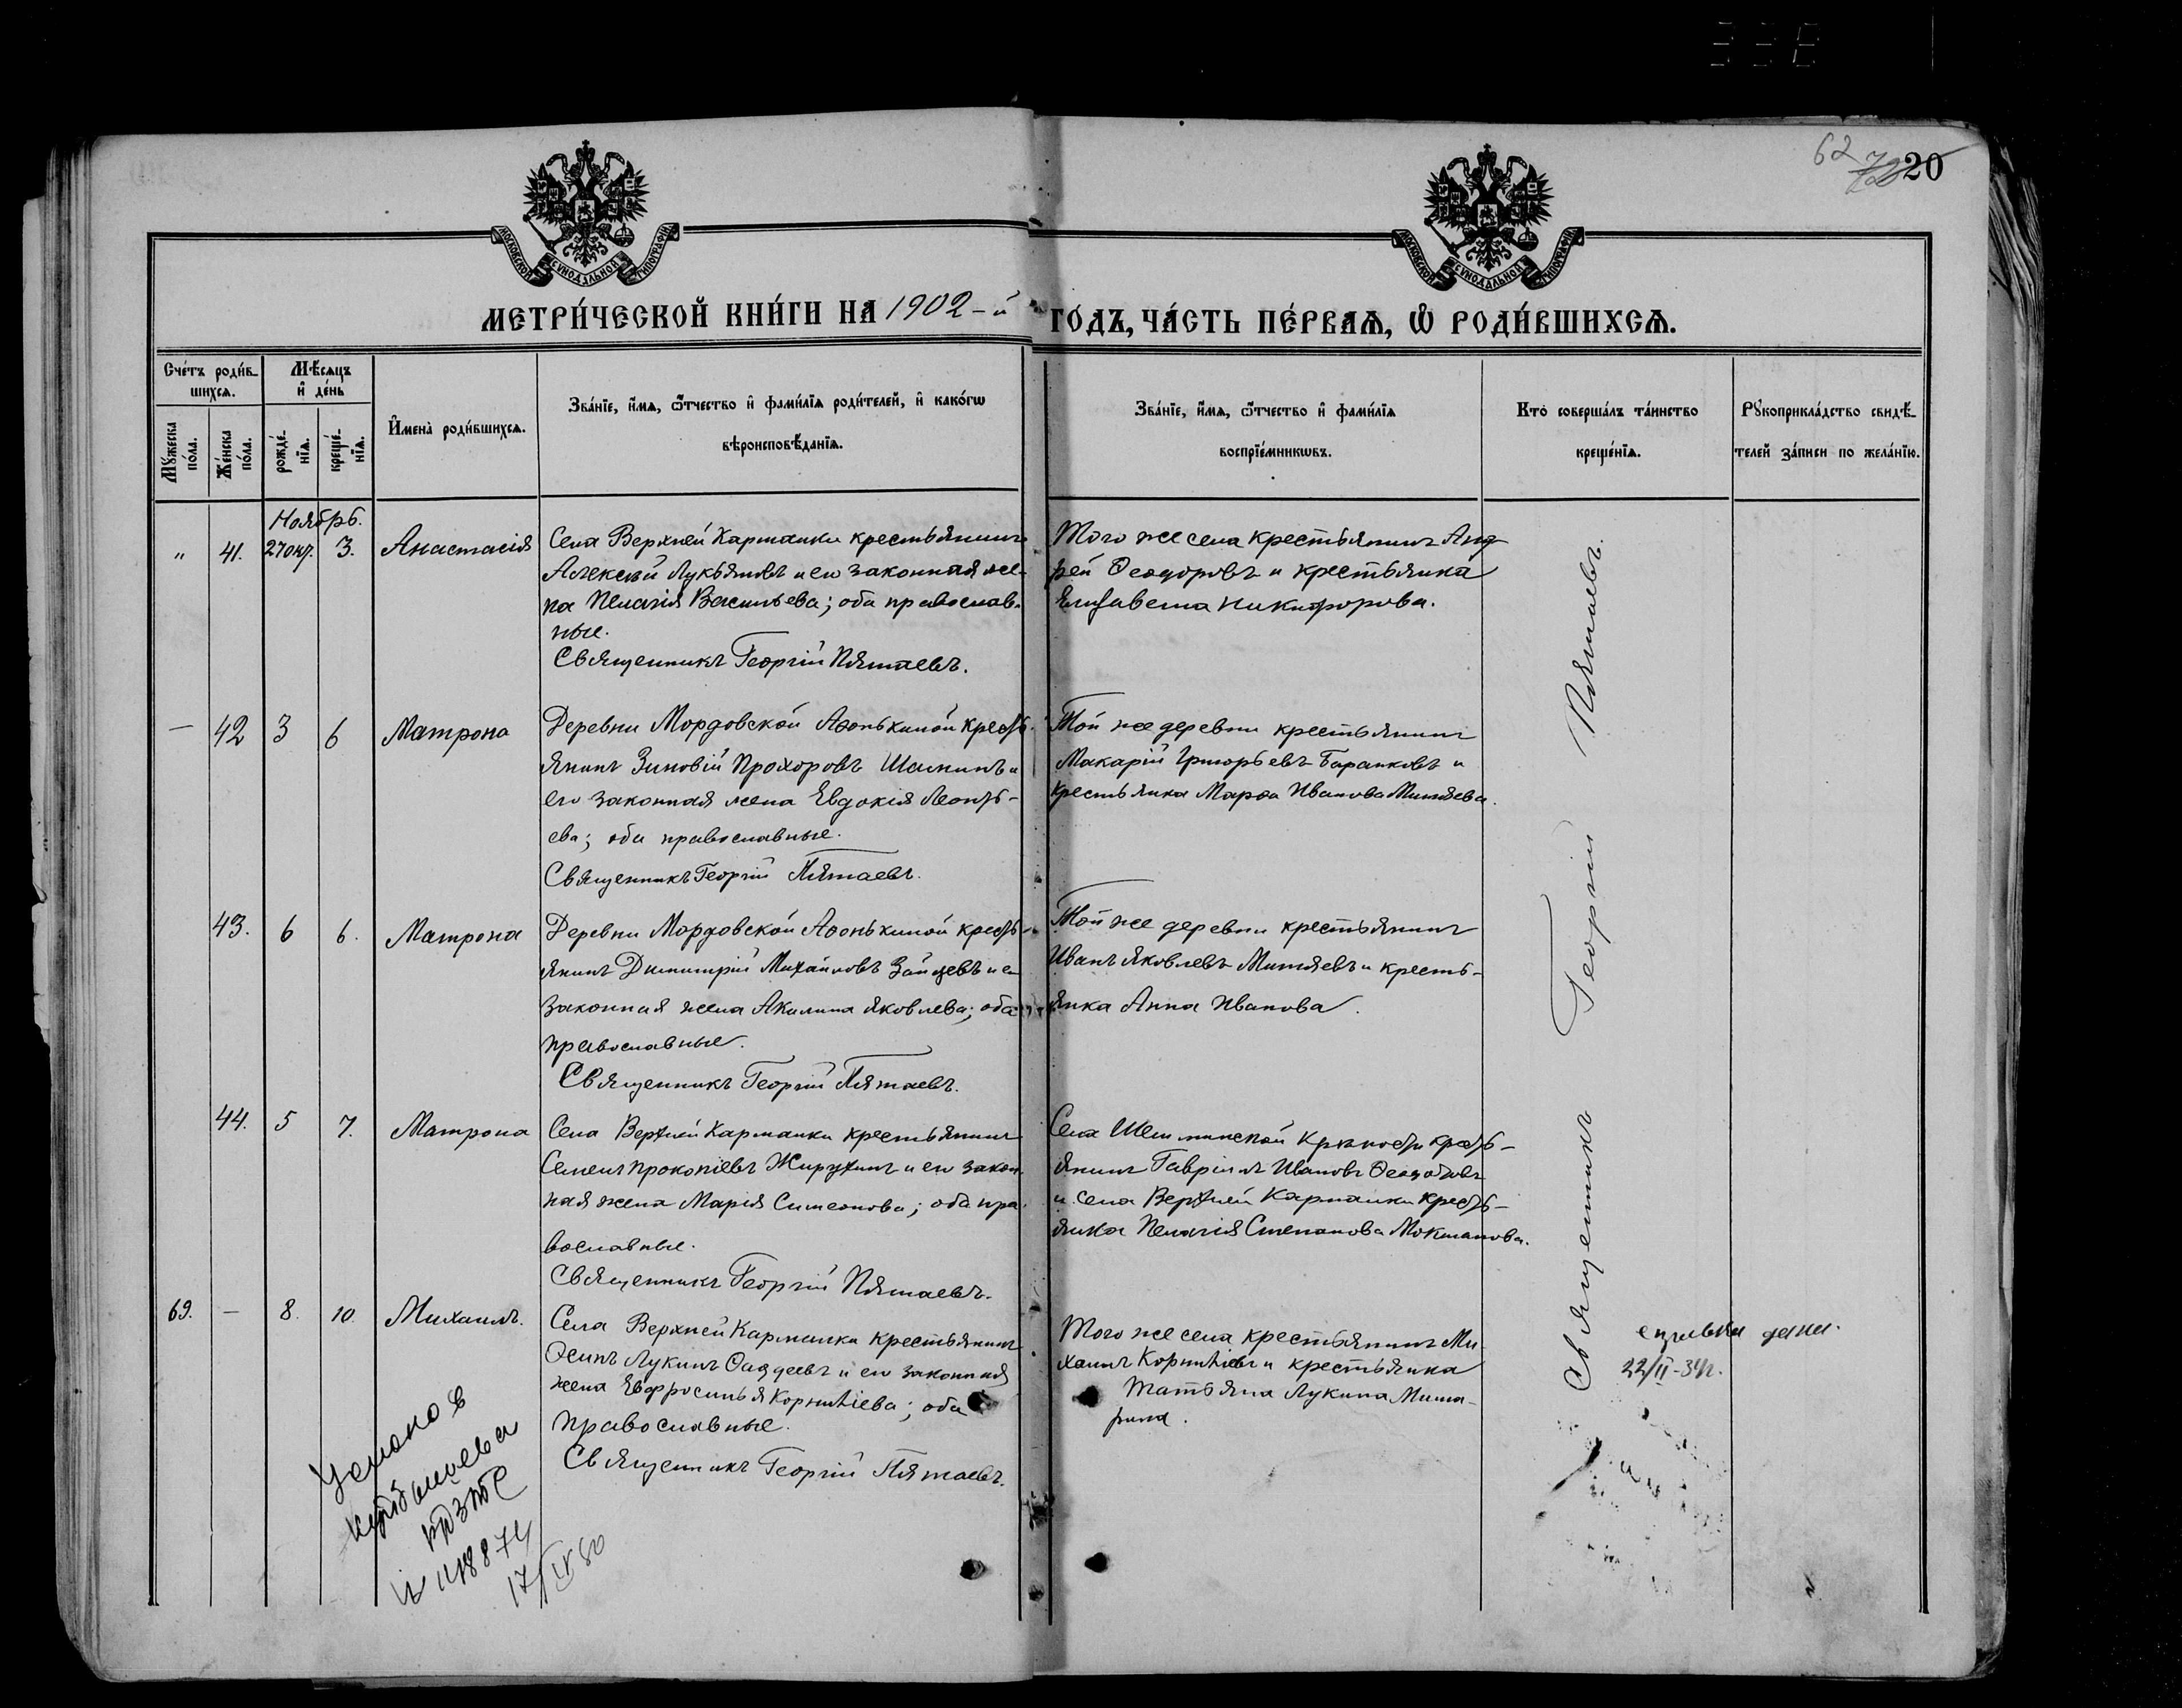 62 20
МОСКОВСКОЙ СѴНОДАЛЬНОЙ ТИПОГРАФІИ
МОСКОВСКОЙ СѴНОДАЛЬНОЙ ТИПОГРАФІИ
МЕТРИ́ЧЕСКОЙ КНИ́ГИ НА 1902-й ГО́ДЪ, ЧА́СТЬ ПЕ́РВАѦ, Ѽ РОДИ́ВШИХСѦ.
Сче́тъ роди́в-
шихсѧ.
Мꙋ́жеска по́ла.
Же́нска по́ла.
Мѣ́сѧцъ
и҆ де́нь
рожде́-
нїѧ.
креще́-
нїѧ.
И҆мена̀ роди́вшихсѧ.
Зва́нїе, и҆́мѧ, ѻ҆́тчество и҆ фами́лїѧ роди́телей, и҆ како́гѡ
вѣроисповѣ́данїѧ.
Зва́нїе, и҆́мѧ, ѻ҆́тчество и҆ фами́лїѧ
воспрїе́мникѡвъ.
Кто̀ соверша́лъ та́инство
креще́нїѧ.
Рꙋкоприкла́дство свидѣ́-
телей за́писи по жела́нїю.
Ноябрь.
„ 41. 27 окт. 3. Анастасія
Села Верхней Кармалки крестьянинъ
Алексѣй Лукьяновъ и его законная же-
на Пелагія Васильева; оба православ-
ные.
Священникъ Георгій Пятаевъ.
Того же села крестьянинъ Анд-
рей Ѳеодоровъ и крестьянка
Елизавета Никифорова.
— 42 3 6 Матрона
Деревни Мордовской Аѳонькиной кресть-
янинъ Зиновій Прохоровъ и
его законная жена Евдокія Леонть-
ева; оба православные.
Священникъ Георгій Пятаевъ.
Той же деревни крестьянинъ
Макарій Григорьевъ Баранковъ и
крестьянка Марѳа Иванова Митяева.
43. 6 6. Матрона
Деревни Мордовской Аѳонькиной кресть-
янинъ Димитрій Михайловъ Зайцевъ и его
законная жена Акилина Яковлева; оба
православные.
Священникъ Георгій Пятаевъ.
Той же деревни крестьянинъ
Иванъ Яковлевъ Митяевъ и кресть-
янка Анна Иванова.
44. 5 7. Матрона
Села Верхней Кармалки крестьянинъ
Семенъ Прокопіевъ Жирухинъ и его закон-
ная жена Марія Симеонова; оба пра-
вославные.
Священникъ Георгій Пятаевъ.
Села Шешминской Крѣпости кресть-
янинъ Гавріилъ Ивановъ
и села Верхней Кармалки кресть-
янка Пелагія Степанова Мокшанова.
69. — 8. 10. Михаилъ.
Села Верхней Кармалки крестьянинъ
Осипъ Лукинъ Ѳаддеевъ и его законная
жена Евфросинья Корнилiева; оба
православные.
Священникъ Георгій Пятаевъ.
Того же села крестьянинъ Ми-
хаилъ Корниліевъ и крестьянка
Татьяна Лукина Миша-
рина.
Священникъ Георгій Пятаевъ.
справка дана.
22/II-34г.
17/IV 60